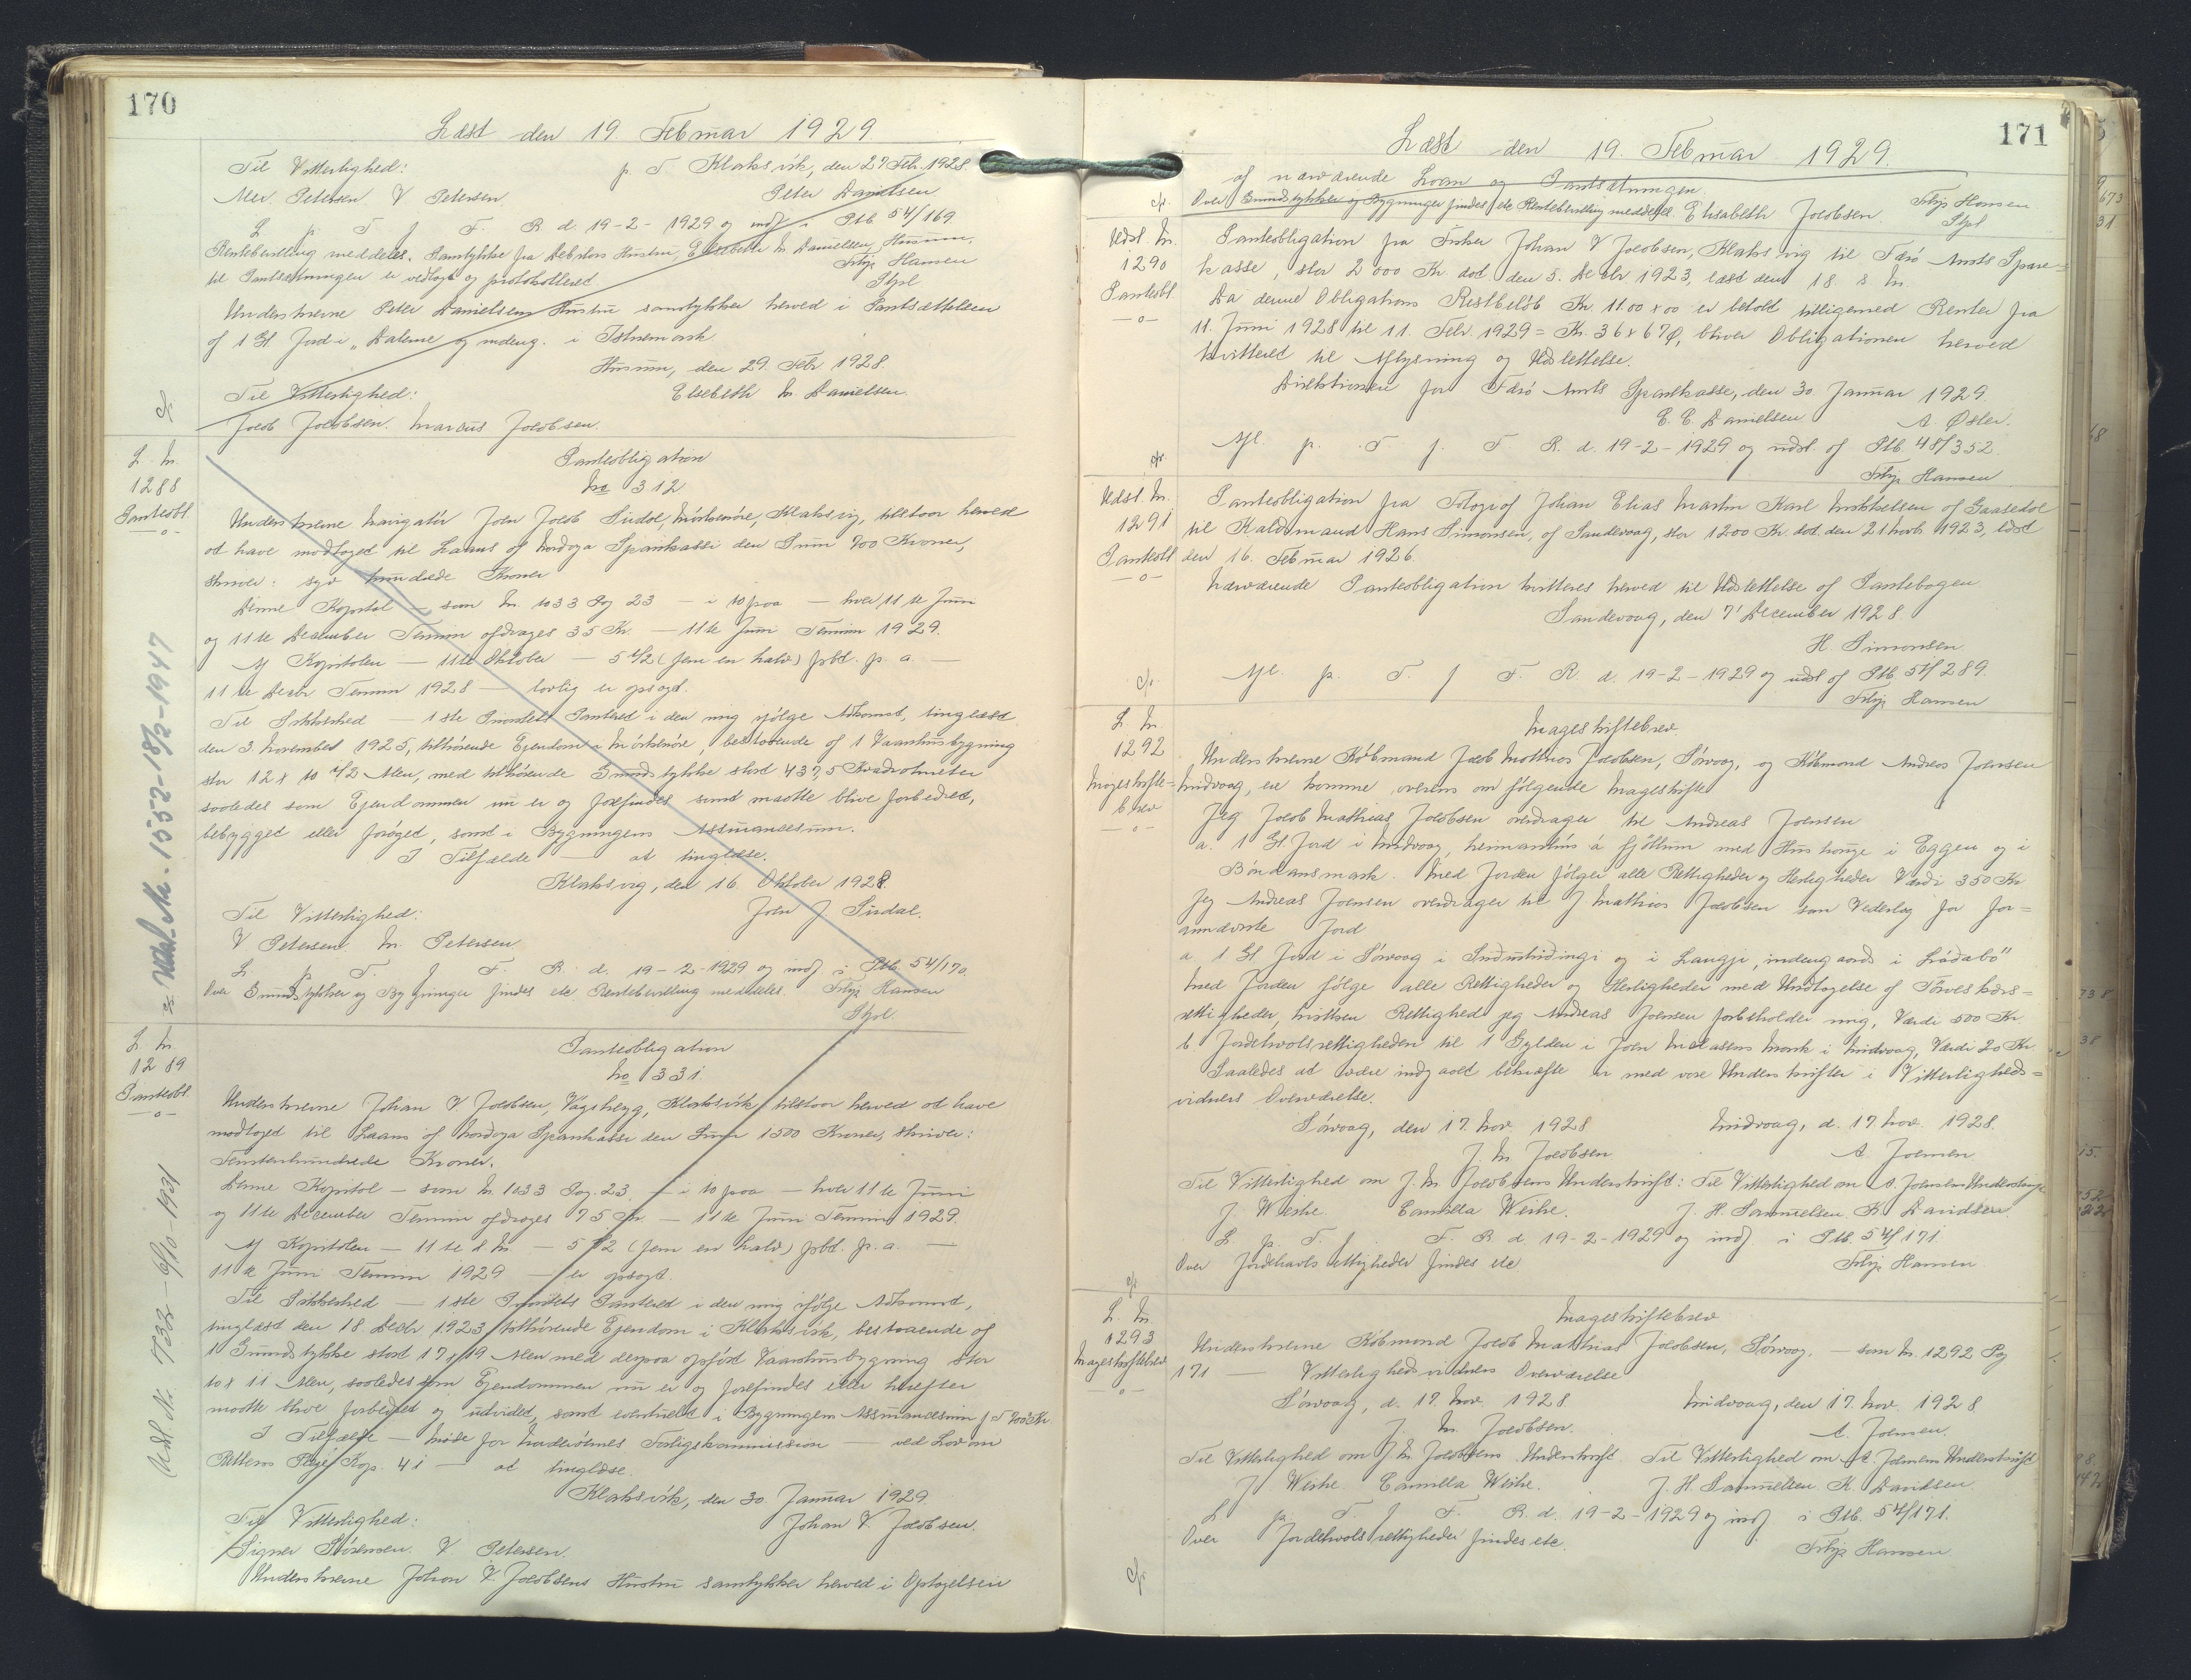 170
Læst den 19. Februar 1929
Til Vitterlighed: p. T. Klaksvik, den 27 Febr. 1928.
Alex. Petersen. V Petersen. Peter Danielsen
L p. T f F. R. d. 19-2-1929 og indf i Ptb 54/169
Rentebevilling meddeles. Samtykke fra Debitors Hustru, Elsebeth M. Danielsen, Husum,
til Pantsætningen er vedlagt og protokolleret Filip Hansen
Stpl
Underskrevne Peter Danielsens Hustru samtykker herved i Pantsættelsen
af 1 Gl Jord i "Dalene" og indeng. i Fstnemark
Husum, den 29. Febr 1928.
Til Vitterlighed: Elsebeth M. Danielsen.
Jacob Jacobsen. Marcus Jacobsen.
L. Nr. 1288 Panteobl.
Panteobligation
No 312
Underskrevne Navigatør Joen Jacob Sivdal, Mørkenøre, Klaksvig, tilstaar herved
at have modtaget til Laans af Nordoya Sparikassi den Sum 700 Kroner,
skriver: syv hundrede Kroner
Denne Kapital — som Nr. 1033 Pag 23 — i 10 paa — hver 11te Juni
og 11te December Termin afdrages 35 Kr. — 11te Juni Termin 1929.
Af Kapitalen — 11te Oktober — 5 1/2 (fem en halv) pCt. p. a. —
11te Decbr Termin 1928 — lovlig er opsagt.
Til Sikkerhed — 1ste Prioritets Panteret i den mig ifølge Adkomst, tinglæst
den 3. November 1925, tilhørende Ejendom i Mørkenøre, bestaaende af 1 Vaaningsbygning
stor 12 x 10 1/2 Alen, med tilhørende Grundstykke stort 437,5 Kvadratmeter
saaledes som Ejendommen nu er og forefindes samt maatte blive forbedret,
bebygget eller forøget, samt i Bygningens Assurancesum.
I Tilfælde — at tinglæse.
Klaksvig, den 16. Oktober 1928.
Til Vitterlighed: Joen J Sivdal.
V Petersen M. Petersen
L. p. T. f F. R. d. 19-2-1929 og indf. i Ptb. 54/170.
Over Grundstykker og Bygninger findes etc Rentebevilling meddeles. Filip Hansen
Stpl.
Udsl. Nr. 1552-18/2-1947
L Nr. 1289 Panteobl.
Panteobligation
No 331.
Underskrevne Johan V Jacobsen, Vágsheyg, Klaksvik, tilstaar herved at have
modtaget til Laans af Nordoya Sparikassi den Sum 1500 Kroner, skriver:
Femtenhundrede Kroner.
Denne Kapital — som Nr. 1033 Pag. 23. — i 10 paa — hver 11te Juni
og 11te December Termin afdrages 75 Kr. — 11te Juni Termin 1929.
Af Kapitalen — 11te d. M. — 5 1/2 (fem en halv) pCt. p. a. —
11te Juni Termin 1929 — er opsagt.
Til Sikkerhed — 1ste Prioritets Panteret i den mig ifølge Adkomst,
tinglæst den 18. Decbr 1923, tilhørende Ejendom i Klaksvik, bestaaende af
1 Grundstykke stort 17 x 19 Alen med derpaa opført Vaaningsbygning stor
10 x 11 Alen, saaledes som Ejendommen nu er og forefindes eller herefter
maatte blive forbedret og udvidet, samt eventuelt i Bygningens Assurancesum
I Tilfælde — Møde for Norderøernes Forligskommission — ved Lov om
Rettens Pleje Kap. 41 — at tinglæse.
Klaksvik, den 30. Januar 1929.
Til Vitterlighed: Johan V. Jacobsen.
Signar Sørensen. V Petersen.
Underskrevne Johan V. Jacobsens Hustru samtykker herved i Optagelsen
Udsl Nr 7332-6/10-1931
171
Læst den 19. Februar 1929.
af nærværende Laan og Pantsætningen.
Over Grundstykker og Bygninger findes etc Rentebevilling meddeles. Elisabeth Jacobsen. Filip Hansen
Stpl
Udsl. Nr. 1290 Panteobl.
Panteobligation fra Fisker Johan V Jacobsen, Klaksvig til Færø Amts Spare-
kasse, stor 2000 Kr. dat. den 5. Decbr 1923, læst den 18. s. M.
Da denne Obligations Restbeløb Kr. 1100 x 00 er betalt tilligemed Renter fra
11. Juni 1928 til 11. Febr. 1929 = Kr. 36 x 67 Ø, bliver Obligationen herved
kvitteret til Aflysning og Udslettelse.
Direktionen for Færø Amts Sparekasse, den 30. Januar 1929.
E. E. Danielsen A. Øster.
Afl. p. T f. F R. d. 19-2-1929 og udsl. af Ptb. 48/352.
Filip Hansen
Udsl. Nr. 1291 Panteobl
Panteobligation fra Fotograf Johan Elias Martin Karl Mikkelsen af Gaasedal
til Kaldsmand Hans Simonsen, af Sandevaag, stor 1200 Kr. dat. den 21 Novb 1923, læst
den 16. Februar 1926.
Nærværende Panteobligation kvitteres herved til Udslettelse af Pantebogen
Sandevaag, den 7' December 1928.
H. Simonsen.
Afl. p. T. f F. R. d. 19-2-1929 og udsl. af Ptb. 51/289.
Filip Hansen
L Nr. 1292 Mageskifte-brev
Mageskiftebrev.
Underskrevne Købmand Jacob Mathias Jacobsen, Sørvaag, og Købmand Andreas Joensen
Midvaag, ere komne overens om følgende Mageskifte
Jeg Jacob Mathias Jacobsen overdrager til Andreas Joensen
a. 1 Gl. Jord i Midvaag, heimanhús á fjøttum med Huskouge i Eggen og i
Bóndansmark. Med Jorden følger alle Rettigheder og Herligheder Værdi 350 Kr
Jeg Andreas Joensen overdrager til J Mathias Jacobsen som Vederlag for for-
annævnte Jord
a. 1 Gl. Jord i Sørvaag i Suduskidingi og i Langju, indengaards i Ládabø"
Med Jorden følge alle Rettigheder og Herligheder med Undtagelse af Tørveskærs-
rettigheder, hvilken Rettighed jeg Andreas Joensen forbeholder mig, Værdi 500 Kr.
b Jordehvolsrettigheden til 1 Gylden i Joen Mclasens Mark i Midvaag, Værdi 20 Kr.
Saaledes at være indgaaet bekræfte vi med vore Underskrifter i Vitterligheds-
vidners Overværelse.
Sørvaag, den 17. Nov. 1928 Midvaag, d. 17. Nov. 1928.
J. M. Jacobsen A. Joensen
Til Vitterlighed om J. M. Jacobsens Underskrift: Til Vitterlighed om A. Joensens Underskrift
J. Weihe. Camilla Weihe. J. H. Samuelsen, K. Davidsen.
L. p. T. f. F. R d 19-2-1929 og indf. i Ptb. 54/171.
Over Jordehvols rettigheder findes etc Filip Hansen
L. Nr. 1293 Mageskiftebrev
Mageskiftebrev
Underskrevne Købmand Jacob Mathias Jacobsen, Sørvaag, — som Nr. 1292 Pag
171 — Vitterlighedsvidners Overværelse
Sørvaag, d. 17. Nov. 1928. Midvaag, den 17. Nov. 1928
J. M. Jacobsen. A. Joensen.
Til Vitterlighed om J. M. Jacobsens Underskrift. Til Vitterlighed om A. Joensens Underskrift
J Weihe. Camilla Weihe. J. H. Samuelsen K. Davidsen.
L p. T. f F. R. d. 19-2-1929 og indf. i Ptb. 54/171.
Over Jordehvolsrettigheder findes etc. Filip Hansen